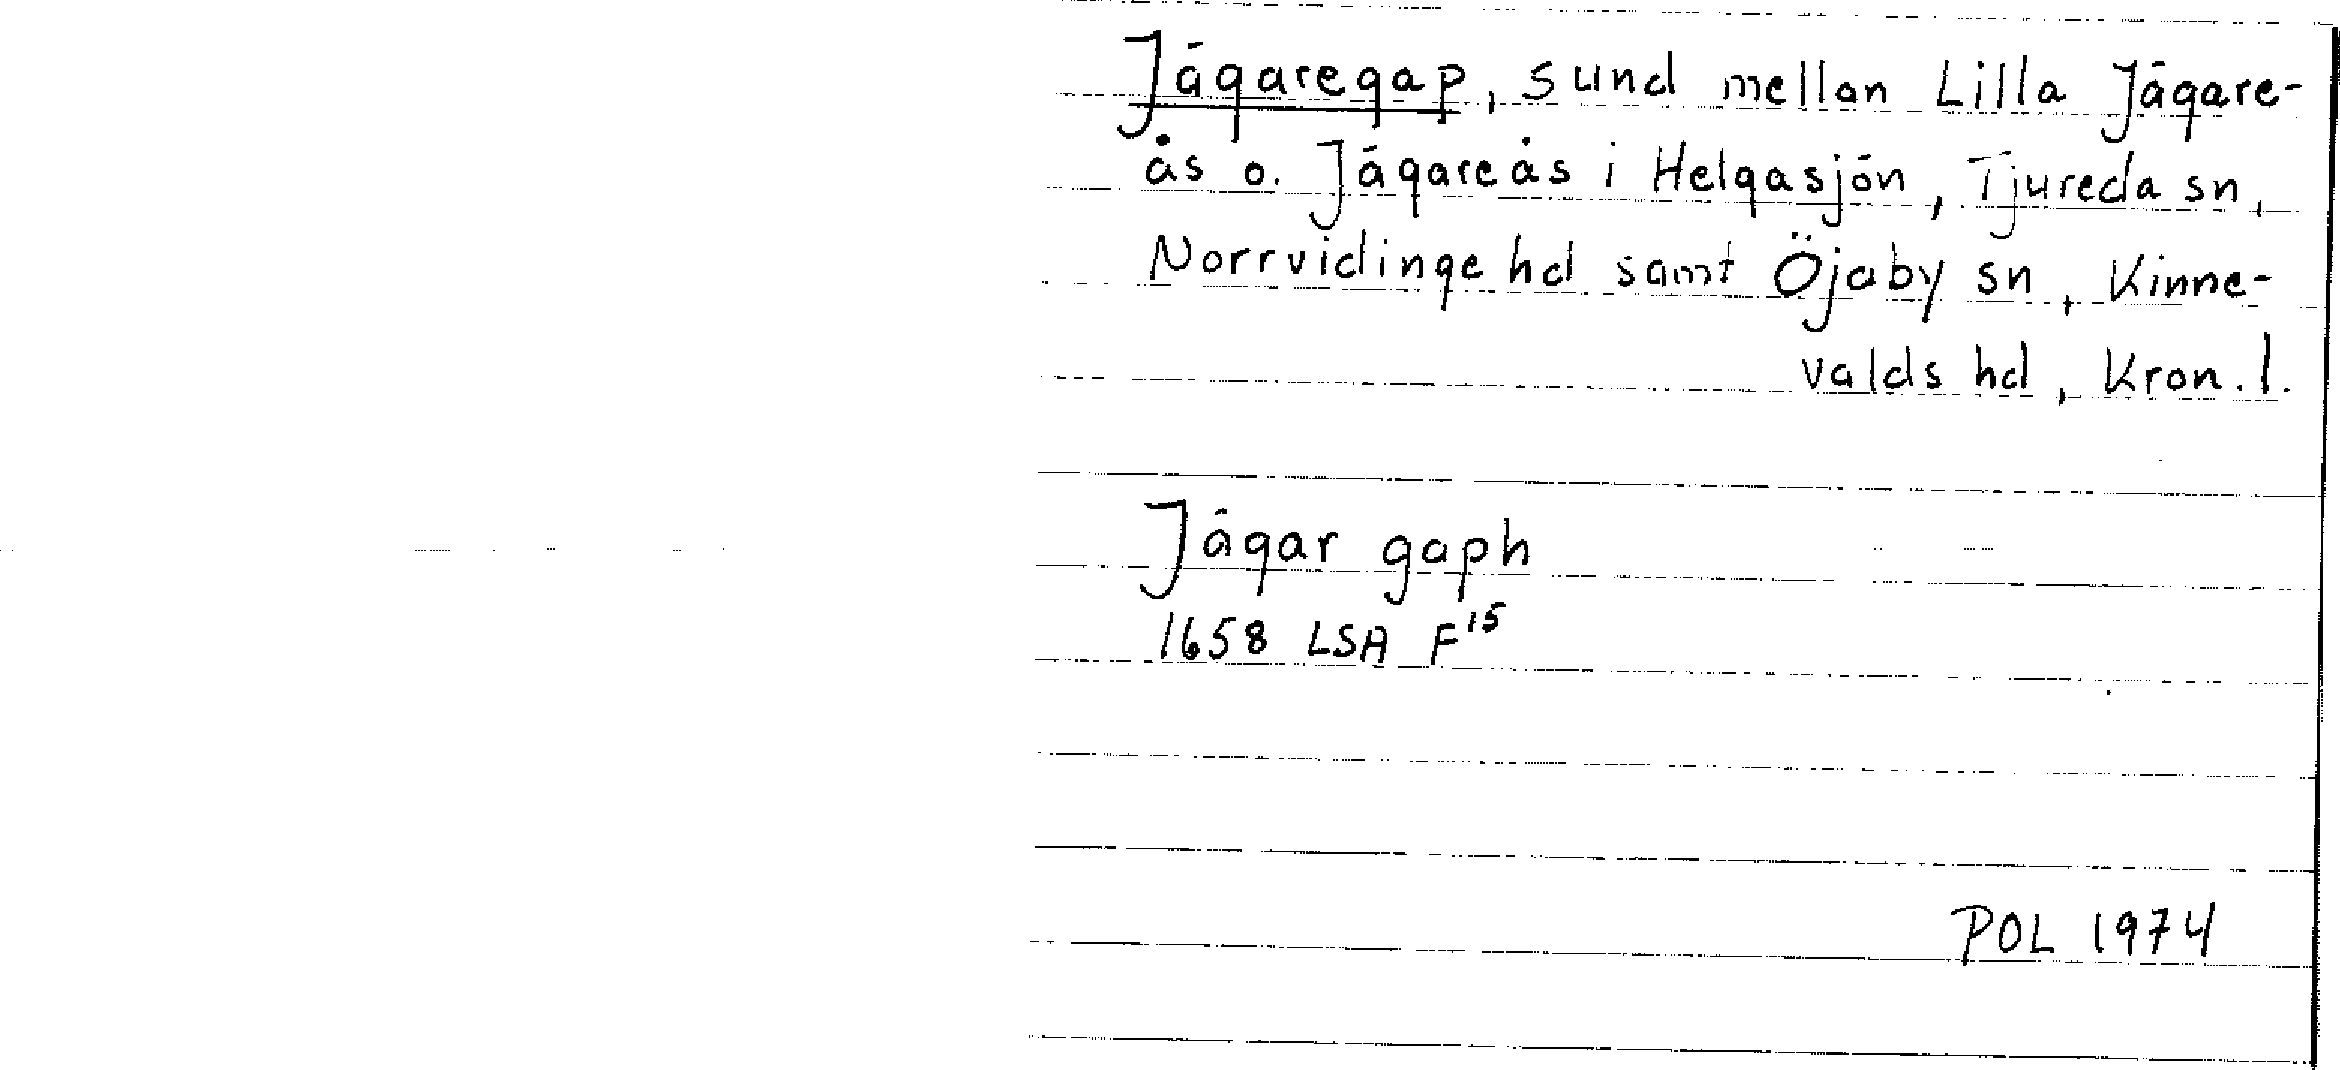 Jägaregap, sund mellan Lilla Jägare-
ås o. Jägareås i Helgasjön, Tjureda sn,
Norrvidinge hd samt Öjaby sn, Kinne-
valds hd, Kron. l.
Jägar gaph
1658 LSA F¹⁵
POL 1974